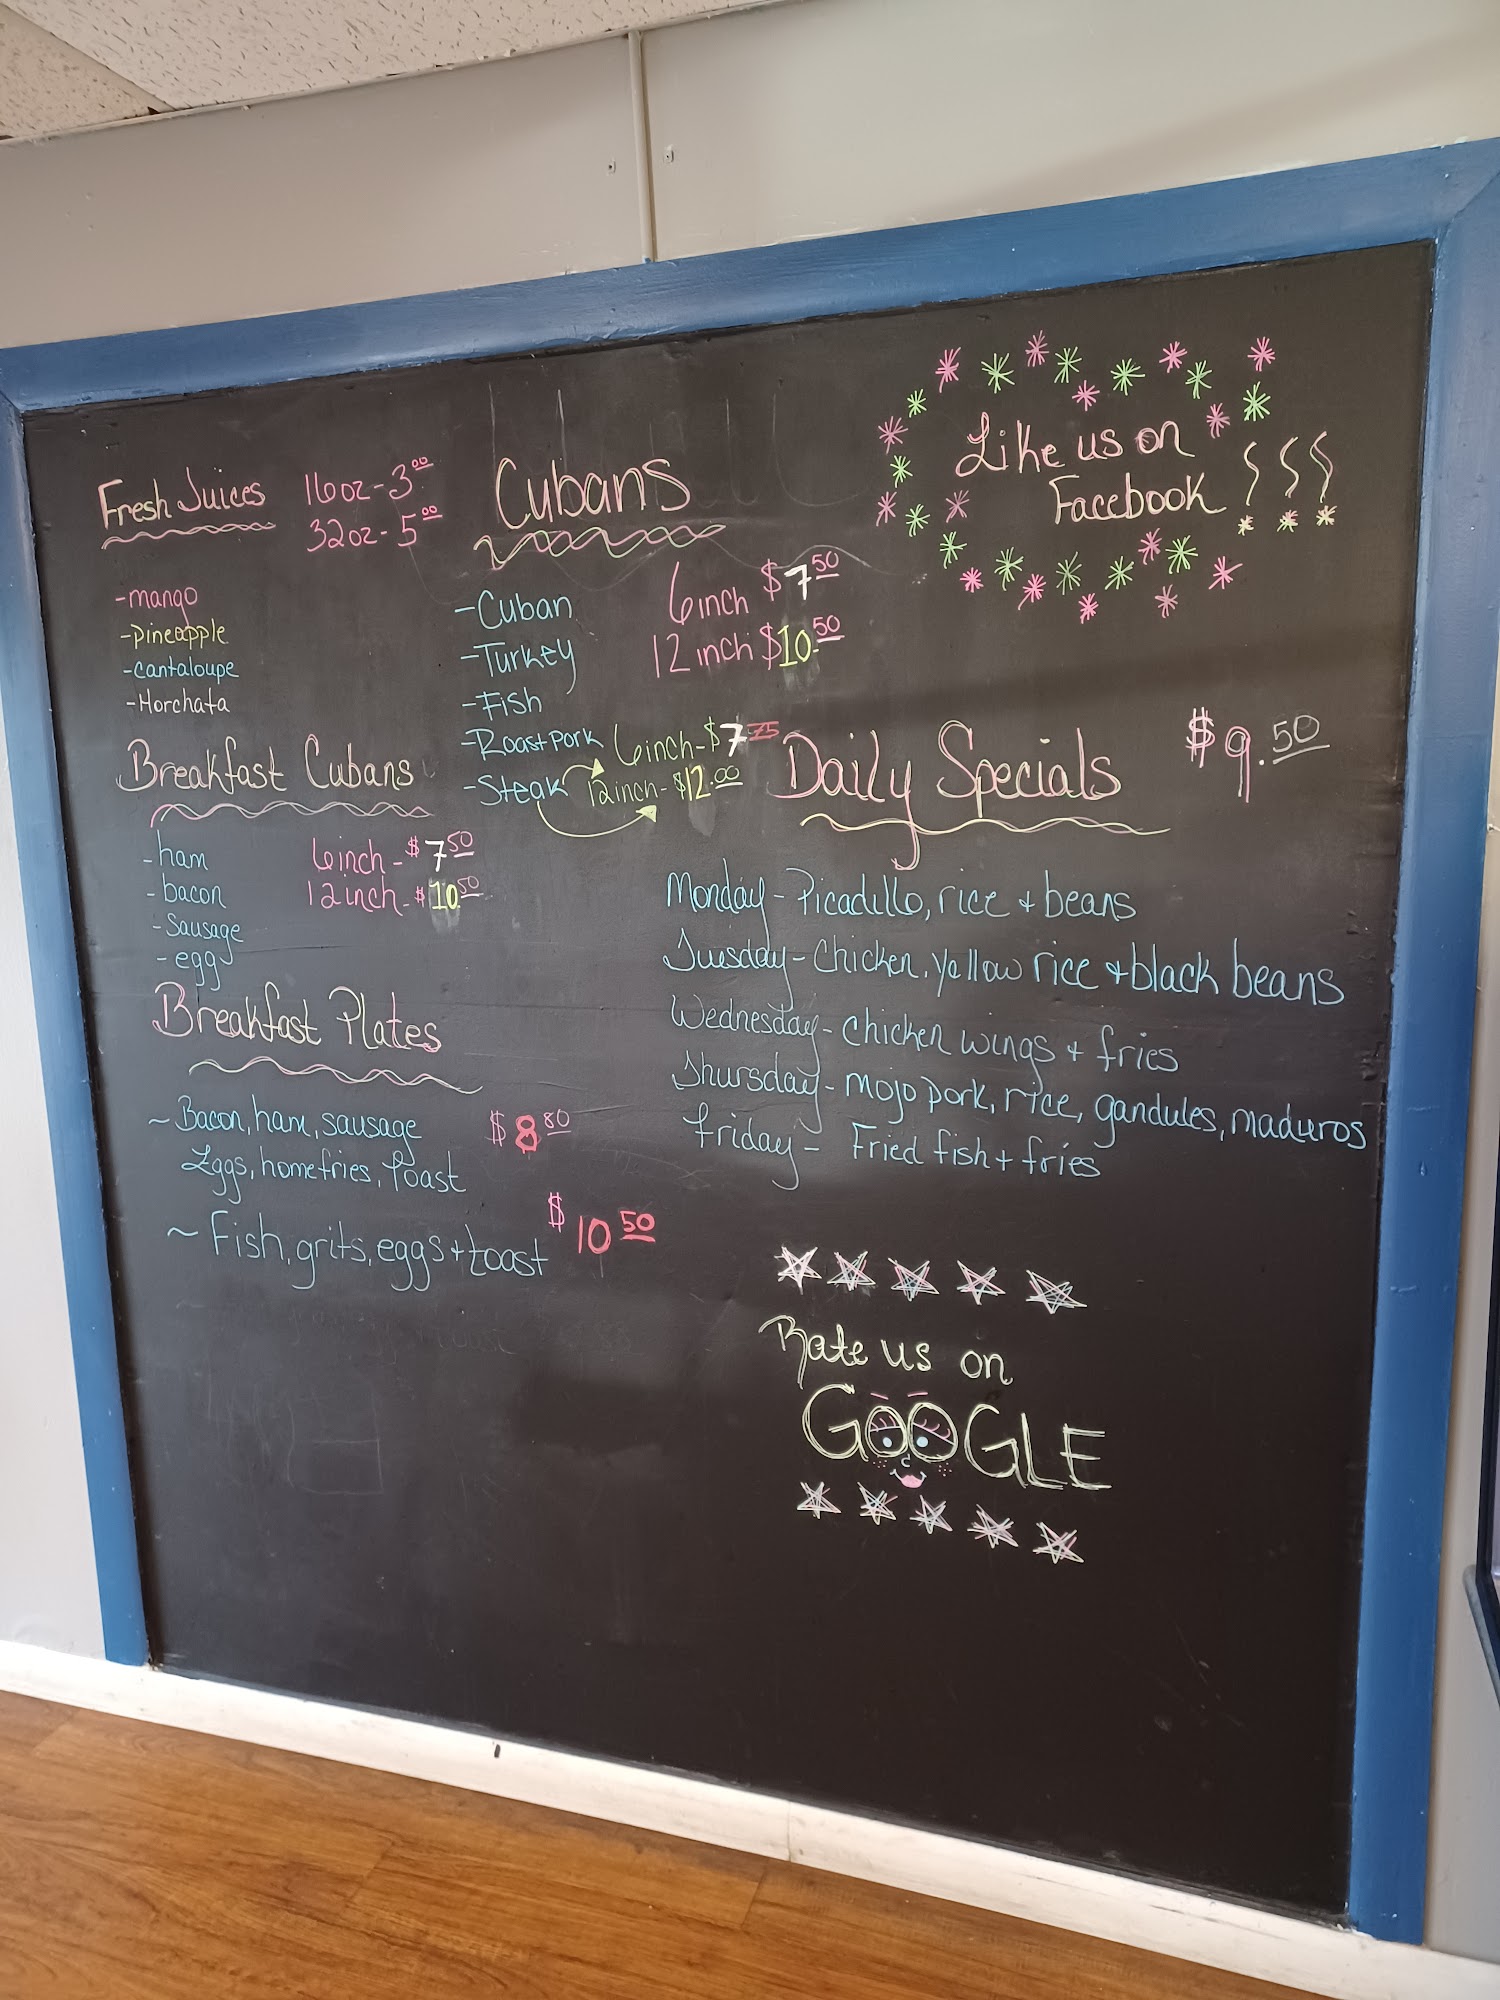 Fresh Juices 16oz-3.00
32oz-5.00
-mango
-pineapple
-cantaloupe
-Horchata
Breakfast Cubans
-ham 6inch-$7.50
-bacon 12inch-$10.50
-Sausage
-egg
Breakfast Plates
~Bacon, ham, sausage $8.80
Eggs, homefries, Toast
~Fish, grits, eggs + toast $10.50
Cubans
-Cuban 6inch $7.50
-Turkey 12inch $10.50
-Fish
-Roast Pork 6inch-$7.75
-Steak 12inch-$12.00
Like us on
Facebook !!!
Daily Specials $9.50
Monday - Picadillo, rice + beans
Tuesday - Chicken, Yellow rice + black beans
Wednesday - Chicken wings + fries
Thursday - mojo pork, rice, gandules, maduros
Friday - Fried fish + fries
Rate us on
GOOGLE